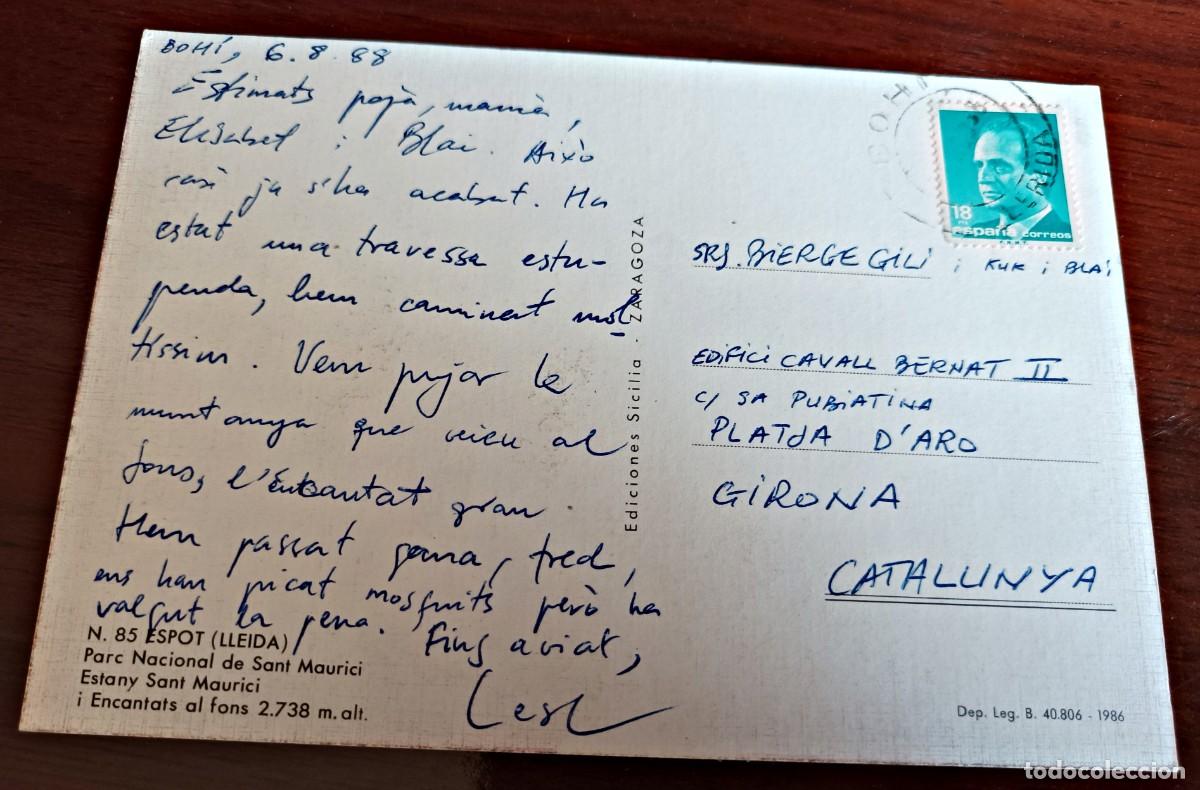 BOHÍ, 6.8.88
Estimats papà, mamà,
Elisabet i Blai. Això
casi ja s'ha acabat. Ha
estat una travessa estu-
penda, hem caminat mol
tissim. Vem pujar la
muntanya que veieu al
fons, l'Encantat gran.
Hem passat gana, fred,
ens han picat mosquits però ha
valgut la pena. Fins aviat,
N. 85 ESPOT (LLEIDA)
Parc Nacional de Sant Maurici
Estany Sant Maurici
i Encantats al fons 2.738 m. alt.
Ediciones Sicilia - ZARAGOZA
BOHI
LERIDA
18
PTS
españa correos
F.N.M.T.
SRS. BIERGE GILI i KUK i BLAI
EDIFICI CAVALL BERNAT II
C/ SA PUBIATINA
PLATJA D'ARO
GIRONA
CATALUNYA
Dep. Leg. B. 40.806 - 1986
todocoleccion